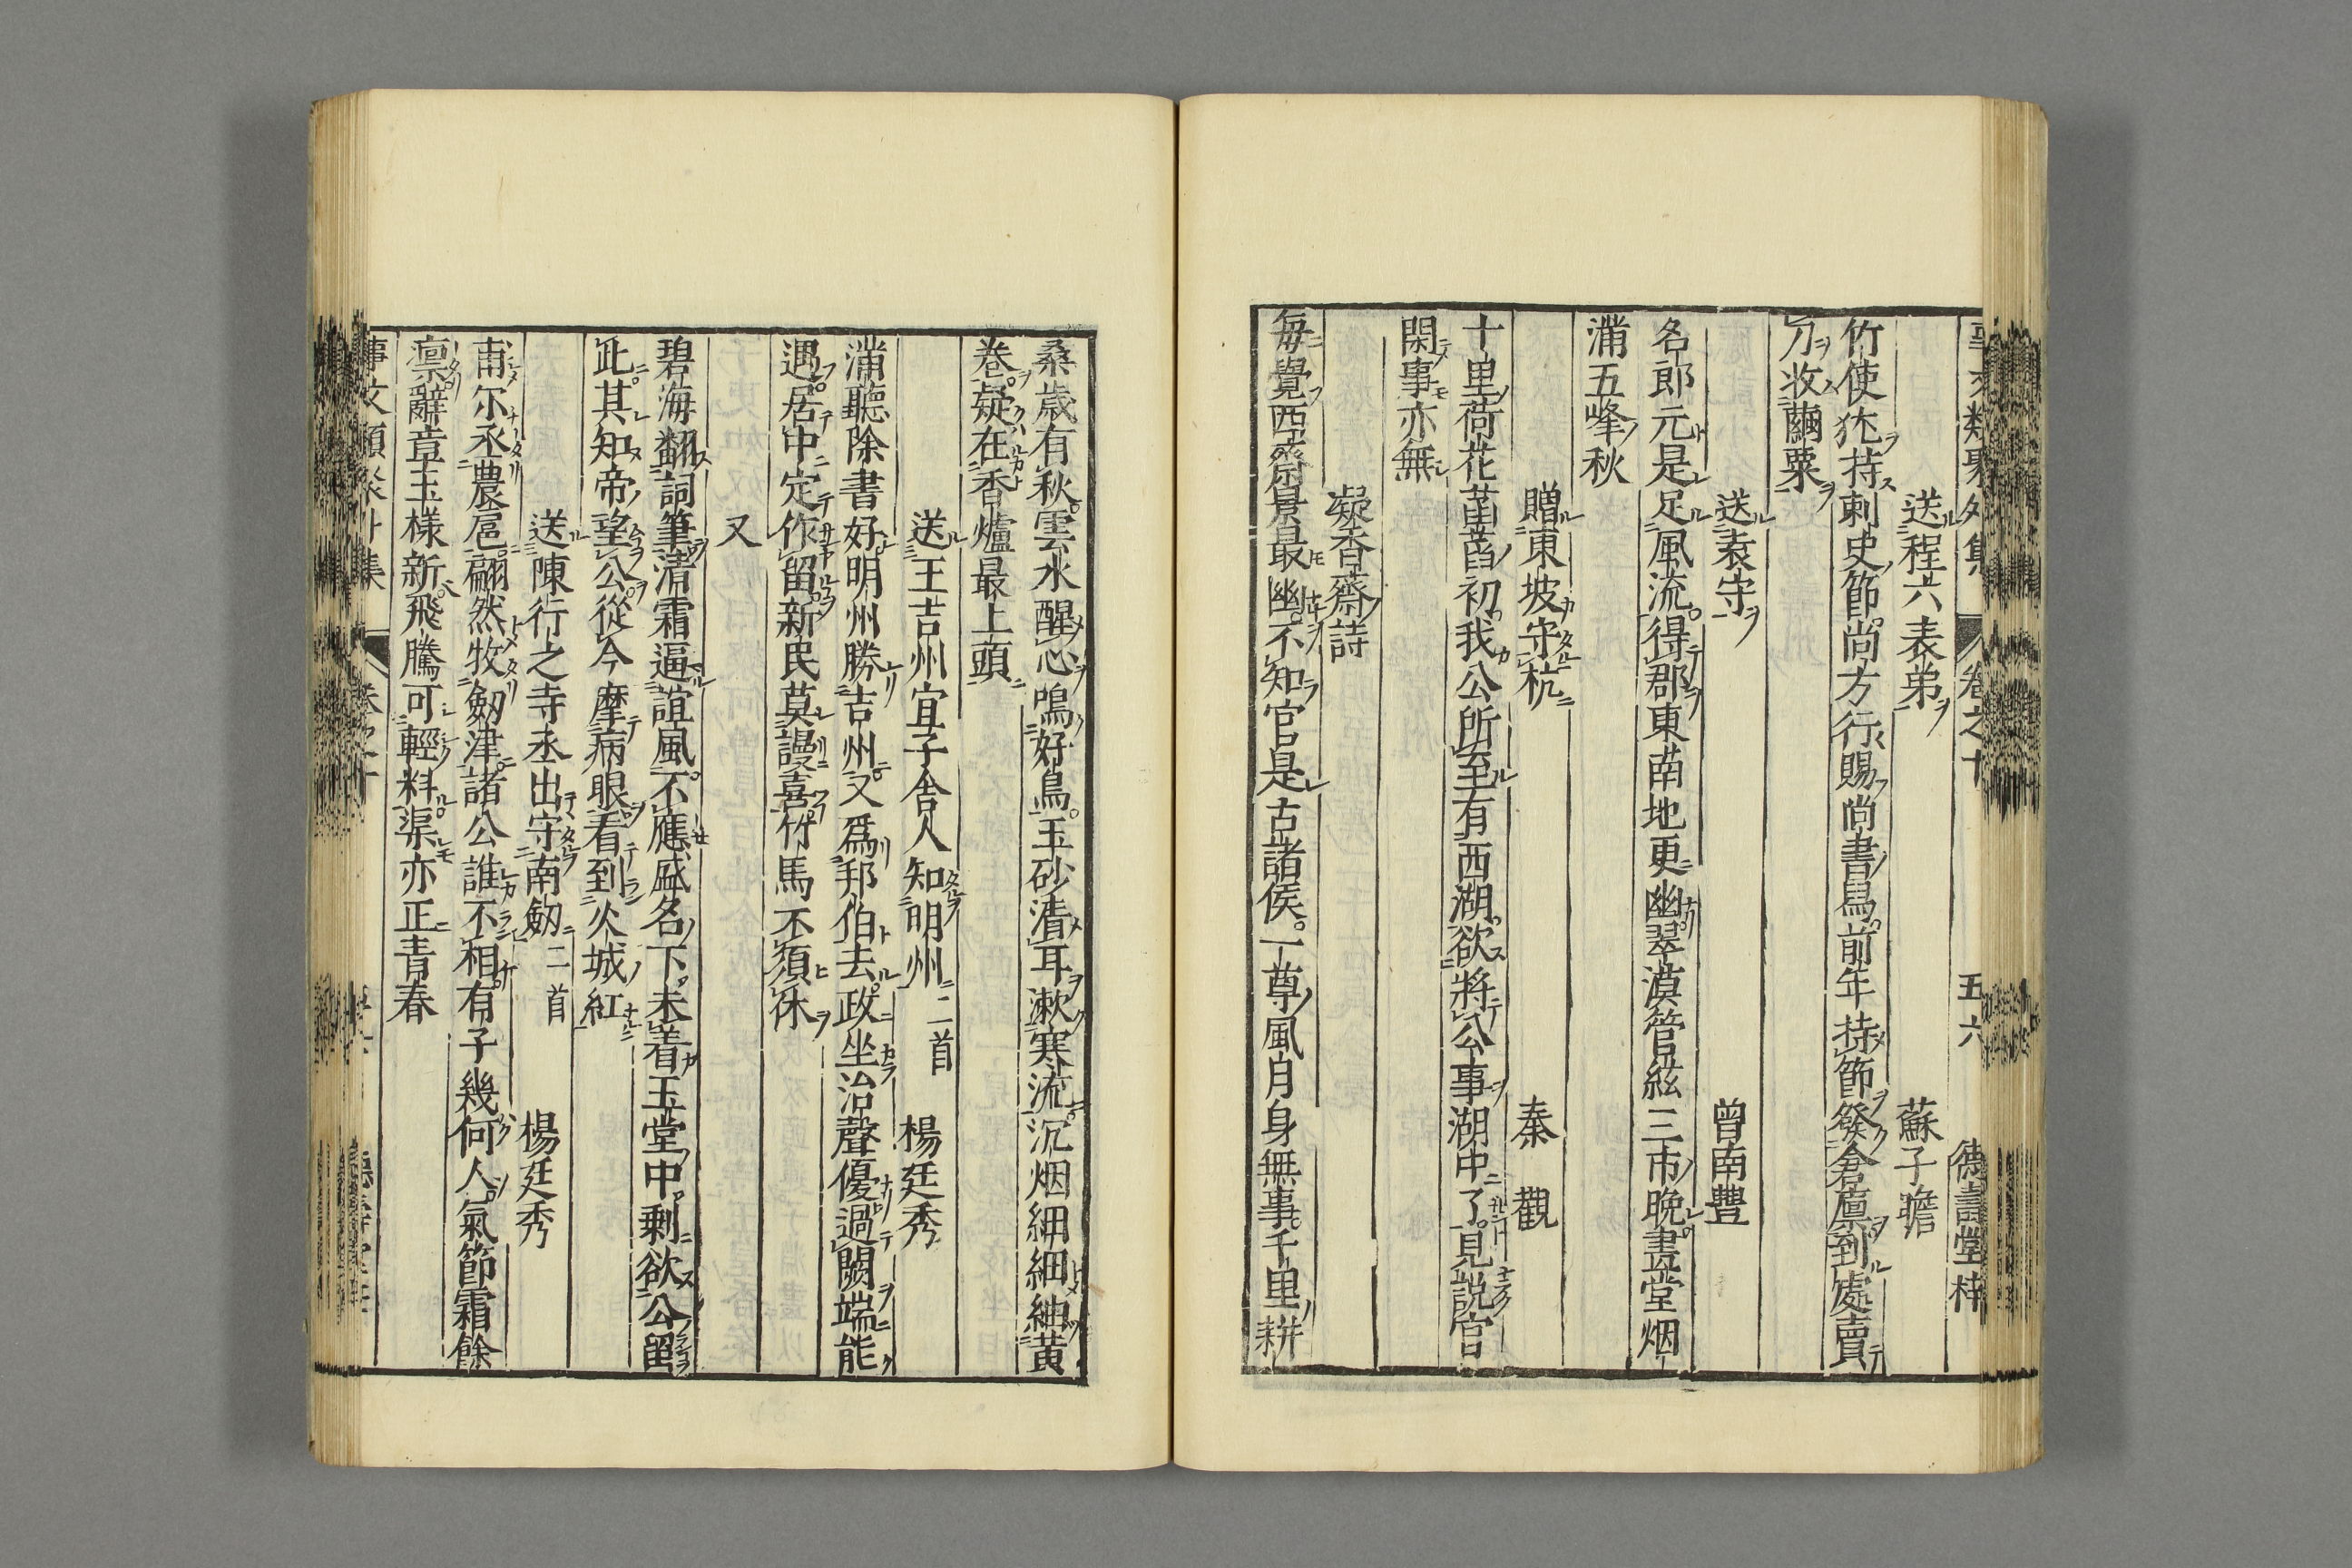 事文類聚外集 卷之十 五六 德壽堂梓
送程六表弟 蘇子瞻
竹使犹持刺史節尚方行賜尚書舄前年持節發倉廩到處賣
刀收繭粟
送袁守 曾南豐
名郎元是足風流得郡東南地更幽翠漠管絃三市晩畫堂烟
滿五峰秋
贈東坡守杭 秦觀
十里荷花菡萏初我公所至有西湖欲將公事湖中了見説官
閑事亦無
凝香齋詩
毎覺西齋景最幽不知官是古諸侯一尊風月身無事千里耕
桑歳有秋雲水醒心鳴好鳥玉砂清耳漱寒流沉烟細細紬黃
卷疑在香爐最上頭
送王吉州宜子舎人知明州二首 楊廷秀
滿聽除書好明州勝吉州又爲邦伯去政坐治聲優過闕端能
遇居中定作留新民莫謾喜竹馬不須休
又
碧海翻詞筆清霜逼誼風不應盛名下未着玉堂中剩欲公留
此其知帝望公從今摩病眼看到火城紅
送陳行之寺丞出守南劒二首 楊廷秀
甫尓丞農扈翩然牧劒津諸公誰不相有子幾何人氣節霜餘
凛辭章玉樣新飛騰可輕料渠亦正青春
事文類聚外集 卷之十